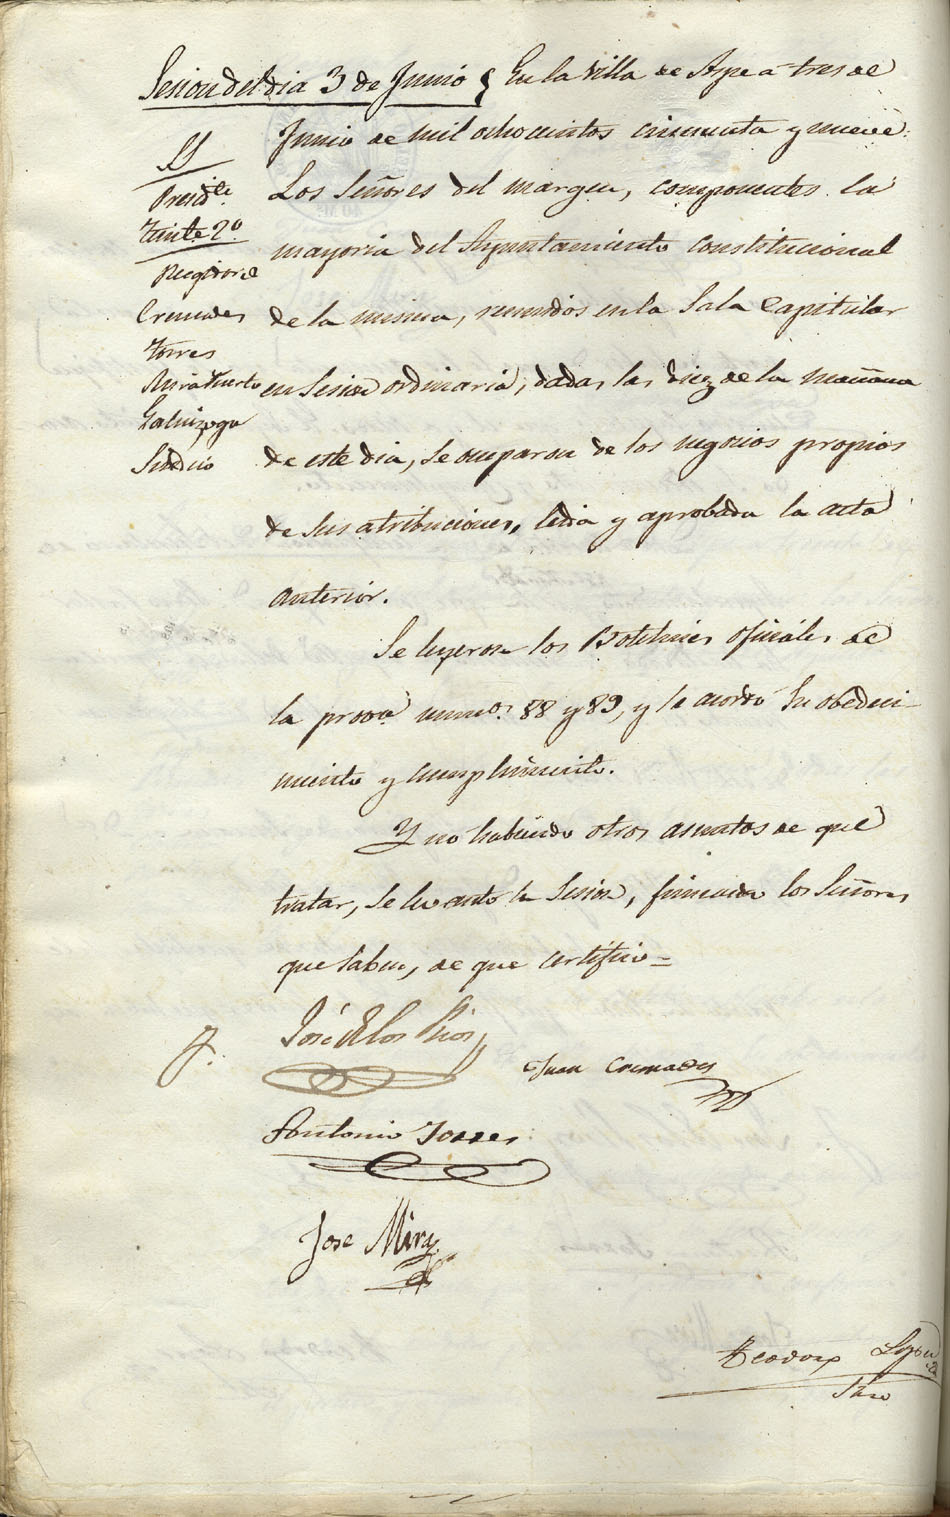 Sesion del dia 3 de Junio } En la Villa de Aspe á tres de
Junio de mil ochocientos cincuenta y nueve:
Los Señores del margen, componentes la
mayoria del Ayuntamiento constitucional
de la misma, reunidos en la Sala Capitular
en Sesion ordinaria, dadas las diez de la mañana
de este dia, se ocuparon de los negocios propios
de sus atribuciones, leida y aprobada la acta
anterior.
SS
Presid.te
Tente. 2º
Regidores
Cremades
Torres
Mira Puerto
Galinzoga
Sindico
Se leyeron los Boletines oficiales de
la prova. numos. 88 y 89, y se acordó su obedeci-
miento y cumplimiento.
Y no habiendo otros asuntos de que
tratar, se levantó la Sesion, firmando los Señores
que saben, de que certifico=
José de los Rios
Juan Cremades
Antonio Torres
Jose Mira
Teodoro
Srio